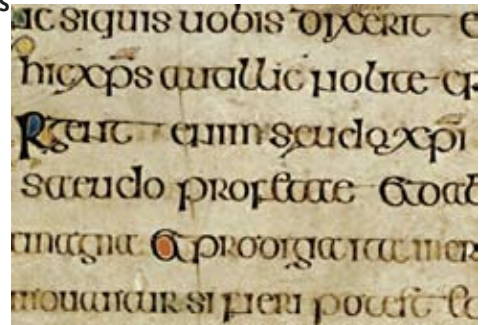 s
nc siquis uobis dixerit e
hic xps aut illic nolite cr
Rgent enim seudo xpi
seudo profetae et dab
magna et prodigia ita
si fieri potest